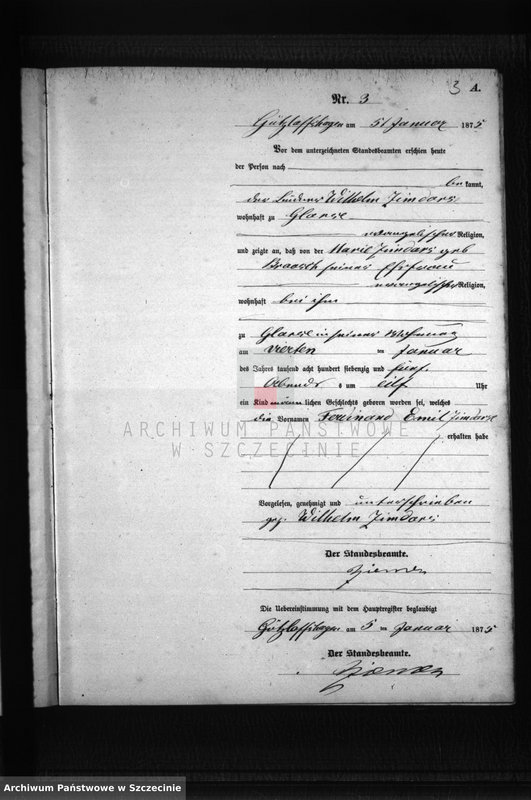 3 A.
Nr. 3
Gützlaffshagen am 5 Januar 1875
Vor dem unterzeichneten Standesbeamten erschien heute
der Person nach
be kannt,
der Wilhelm Zimdars
wohnhaft zu Glaese
evangelischer Religion,
und zeigte an, daß von der Marie Zimdars geb
Braasch seiner Ehefrau
evangelischer Religion,
wohnhaft bei ihm
zu Glaese in seiner Wohnung
am vierten ten Januar
des Jahres tausend acht hundert siebenzig und fünf
Abends s um eilf Uhr
ein Kind männ lichen Geschlechts geboren worden sei, welches
die Vornamen Ferdinand Emil Zimdars
erhalten habe
ARCHIWUM PAŃSTWOWE
W SZCZECINIE
Vorgelesen, genehmigt und unterschrieben
gez. Wilhelm Zimdars
Der Standesbeamte.
Die Uebereinstimmung mit dem Hauptregister beglaubigt
Gützlaffshagen am 5 ten Januar 1875
Der Standesbeamte.
Archiwum Państwowe w Szczecinie